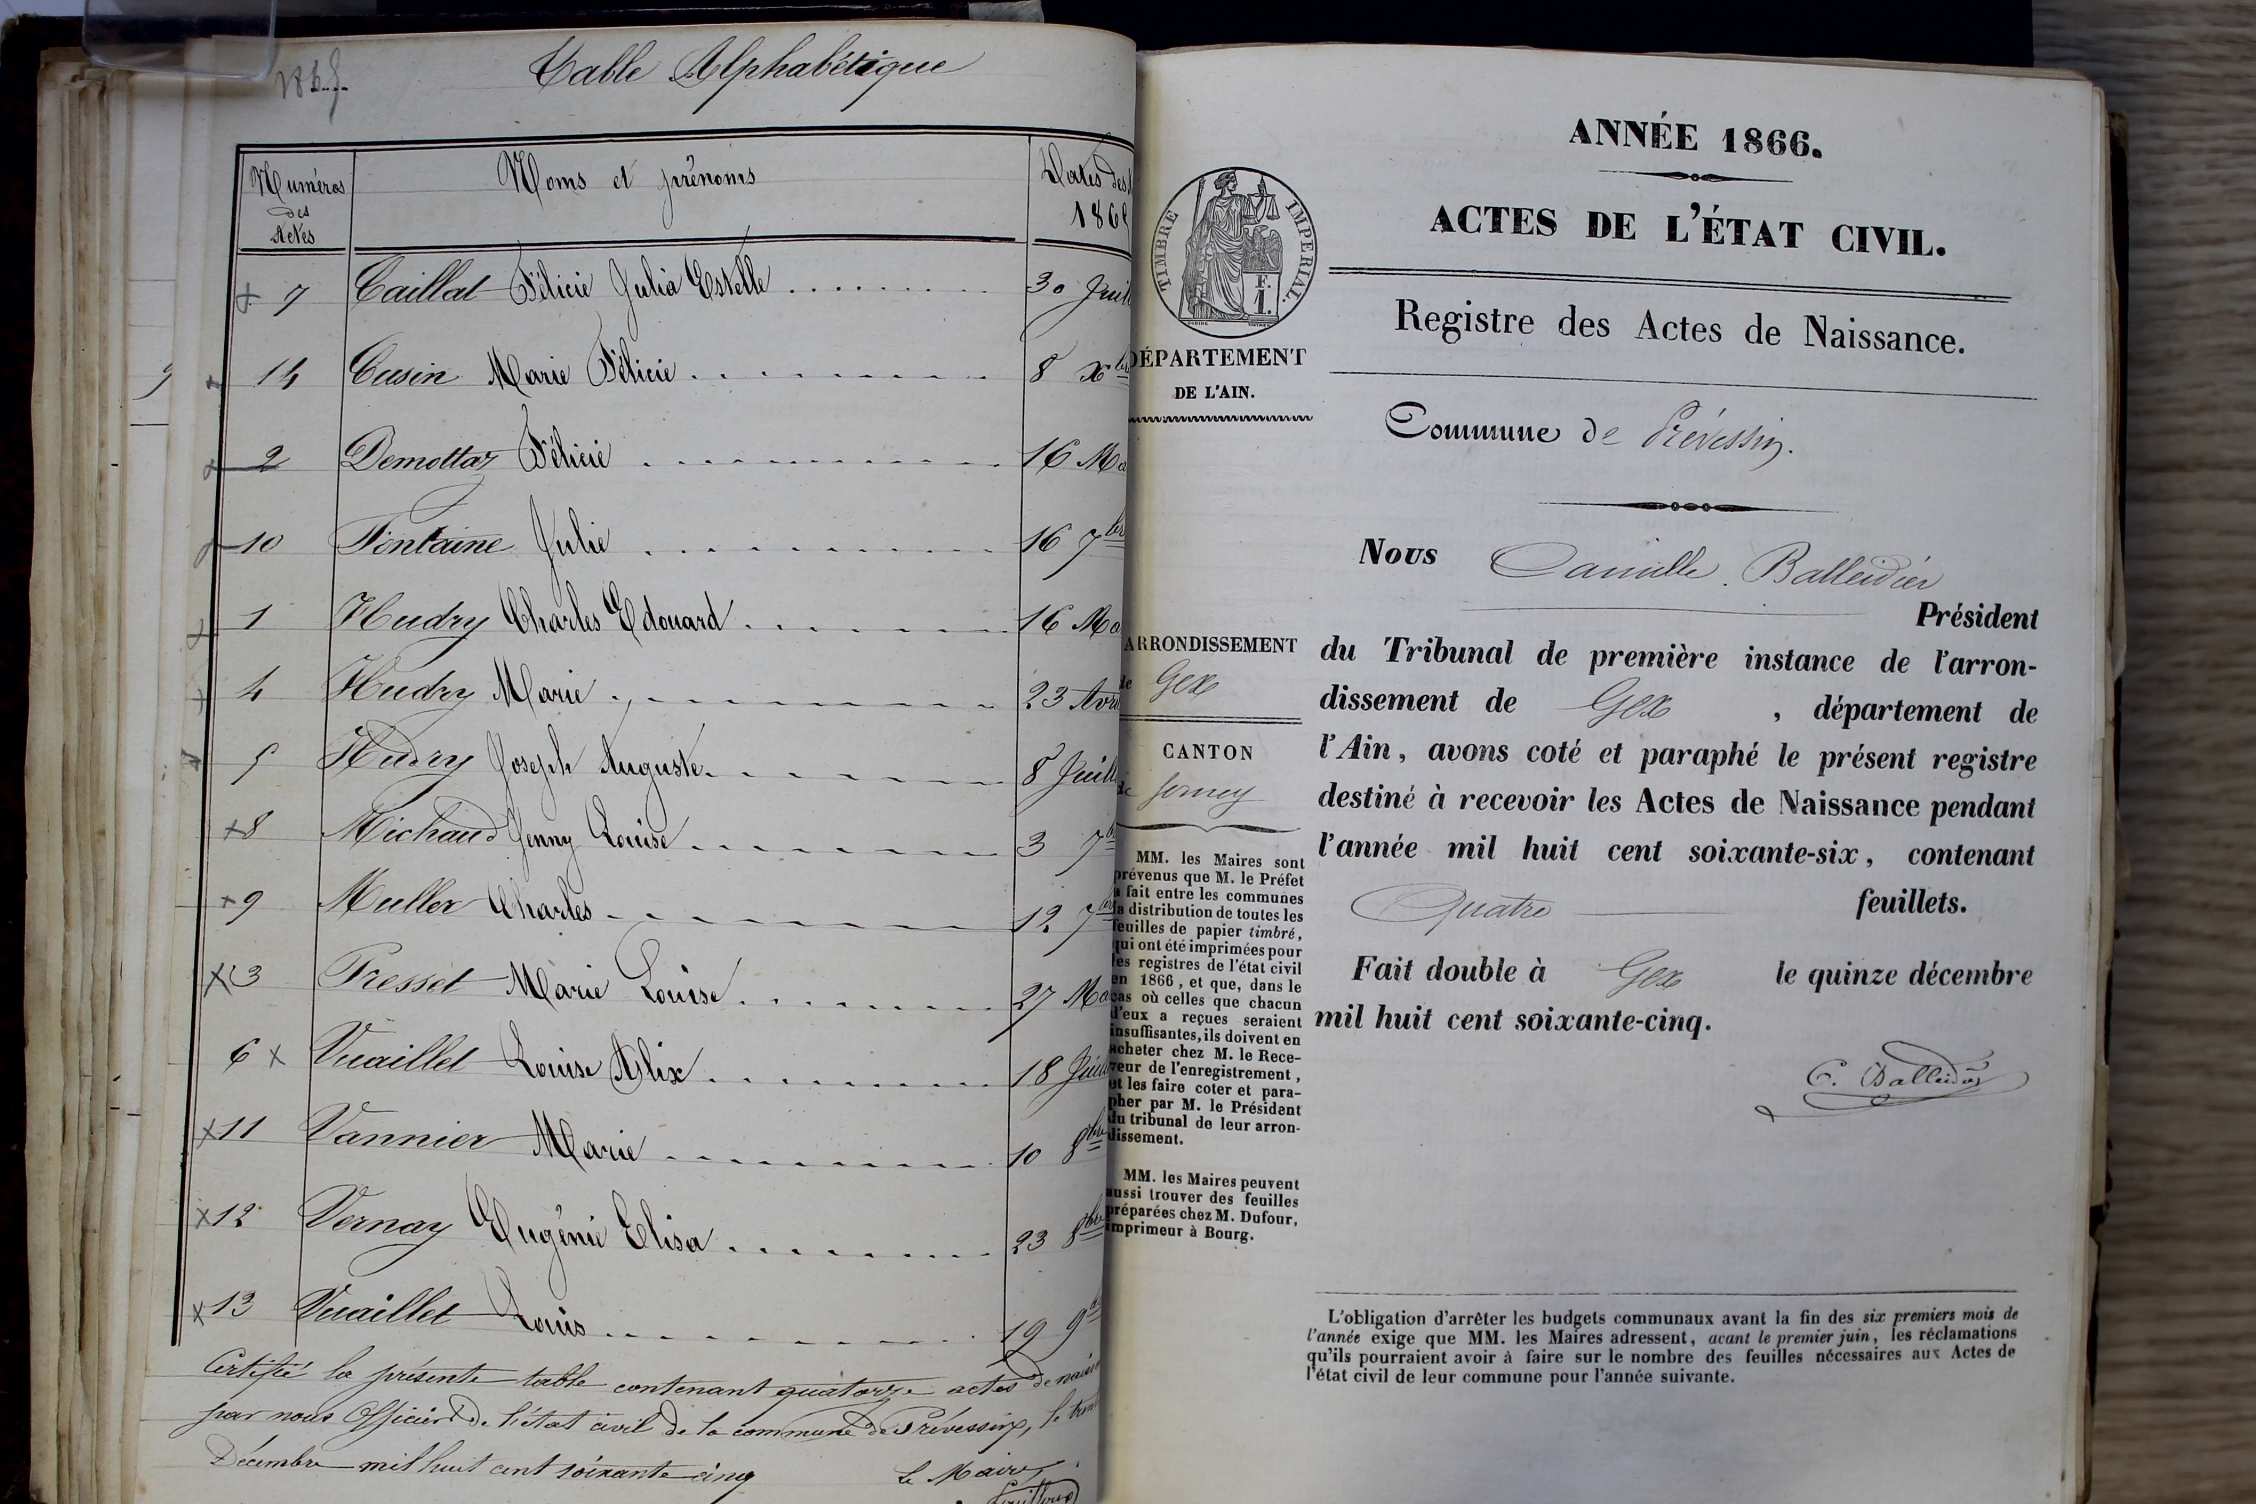 1865
Table Alphabétique
Numéros des Actes
Noms et prénoms
Dates des
186
7 Caillat Félicie Julia Estelle 30 Juil
14 Cusin Marie Félicie 8 Xbre
2 Demottaz Félicie 16 Ma
10 Fontaine Julie 16 7br
1 Hudry Charles Edouard 16 Ma
4 Hudry Marie 23 Avr
5 Hudry Joseph Auguste 8 Juill
8 Michaud Jenny Louise 3 7b
9 Muller Charles 12 7bre
3 Presset Marie Louise 27 Ma
6 Vuaillet Louise Alix 18 Juil
11 Vannier Marie 10 8bre
12 Vernay Eugénie Elisa 23 8bre
13 Vuaillet Louis 19 9b
Certifié la présente table contenant quatorze actes de naiss
par nous Officier de l'état civil de la commune de Prévessin, le tren
Décembre mil huit cent soixante cinq
Le Maire
ANNÉE 1866.
ACTES DE L'ÉTAT CIVIL.
TIMBRE IMPERIAL.
F.
1.
DÉPARTEMENT
DE L'AIN.
Registre des Actes de Naissance.
Commune de Prévessin.
Nous Camille Balleidier
Président
du Tribunal de première instance de l'arron-
dissement de Gex, département de
l'Ain, avons coté et paraphé le présent registre
destiné à recevoir les Actes de Naissance pendant
l'année mil huit cent soixante-six, contenant
Quatre feuillets.
Fait double à Gex le quinze décembre
mil huit cent soixante-cinq.
C. Balleidier
ARRONDISSEMENT
de Gex
CANTON
de Ferney
MM. les Maires sont
prévenus que M. le Préfet
a fait entre les communes
la distribution de toutes les
feuilles de papier timbré,
qui ont été imprimées pour
les registres de l'état civil
en 1866, et que, dans le
cas où celles que chacun
d'eux a reçues seraient
insuffisantes, ils doivent en
acheter chez M. le Rece-
veur de l'enregistrement,
et les faire coter et para-
pher par M. le Président
du tribunal de leur arron-
dissement.
MM. les Maires peuvent
aussi trouver des feuilles
préparées chez M. Dufour,
imprimeur à Bourg.
L'obligation d'arrêter les budgets communaux avant la fin des six premiers mois de
l'année exige que MM. les Maires adressent, avant le premier juin, les réclamations
qu'ils pourraient avoir à faire sur le nombre des feuilles nécessaires aux Actes de
l'état civil de leur commune pour l'année suivante.